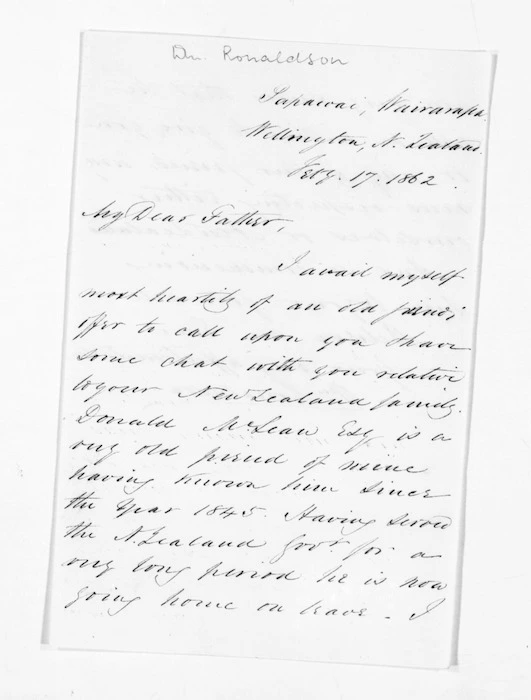 Dr. Ronaldson
Papawai, Wairarapa
Wellington, N. Zealand.
Feby. 17. 1862.
My Dear Father,
I avail myself
most heartily of an old friend's
offer to call upon you & have
some chat with you relative
to your New Zealand family.
Donald McLean Esq is a
very old friend of mine
having known him since
the Year 1845. Having served
the N. Zealand Govt. for a
very long period he is now
going home on leave - I